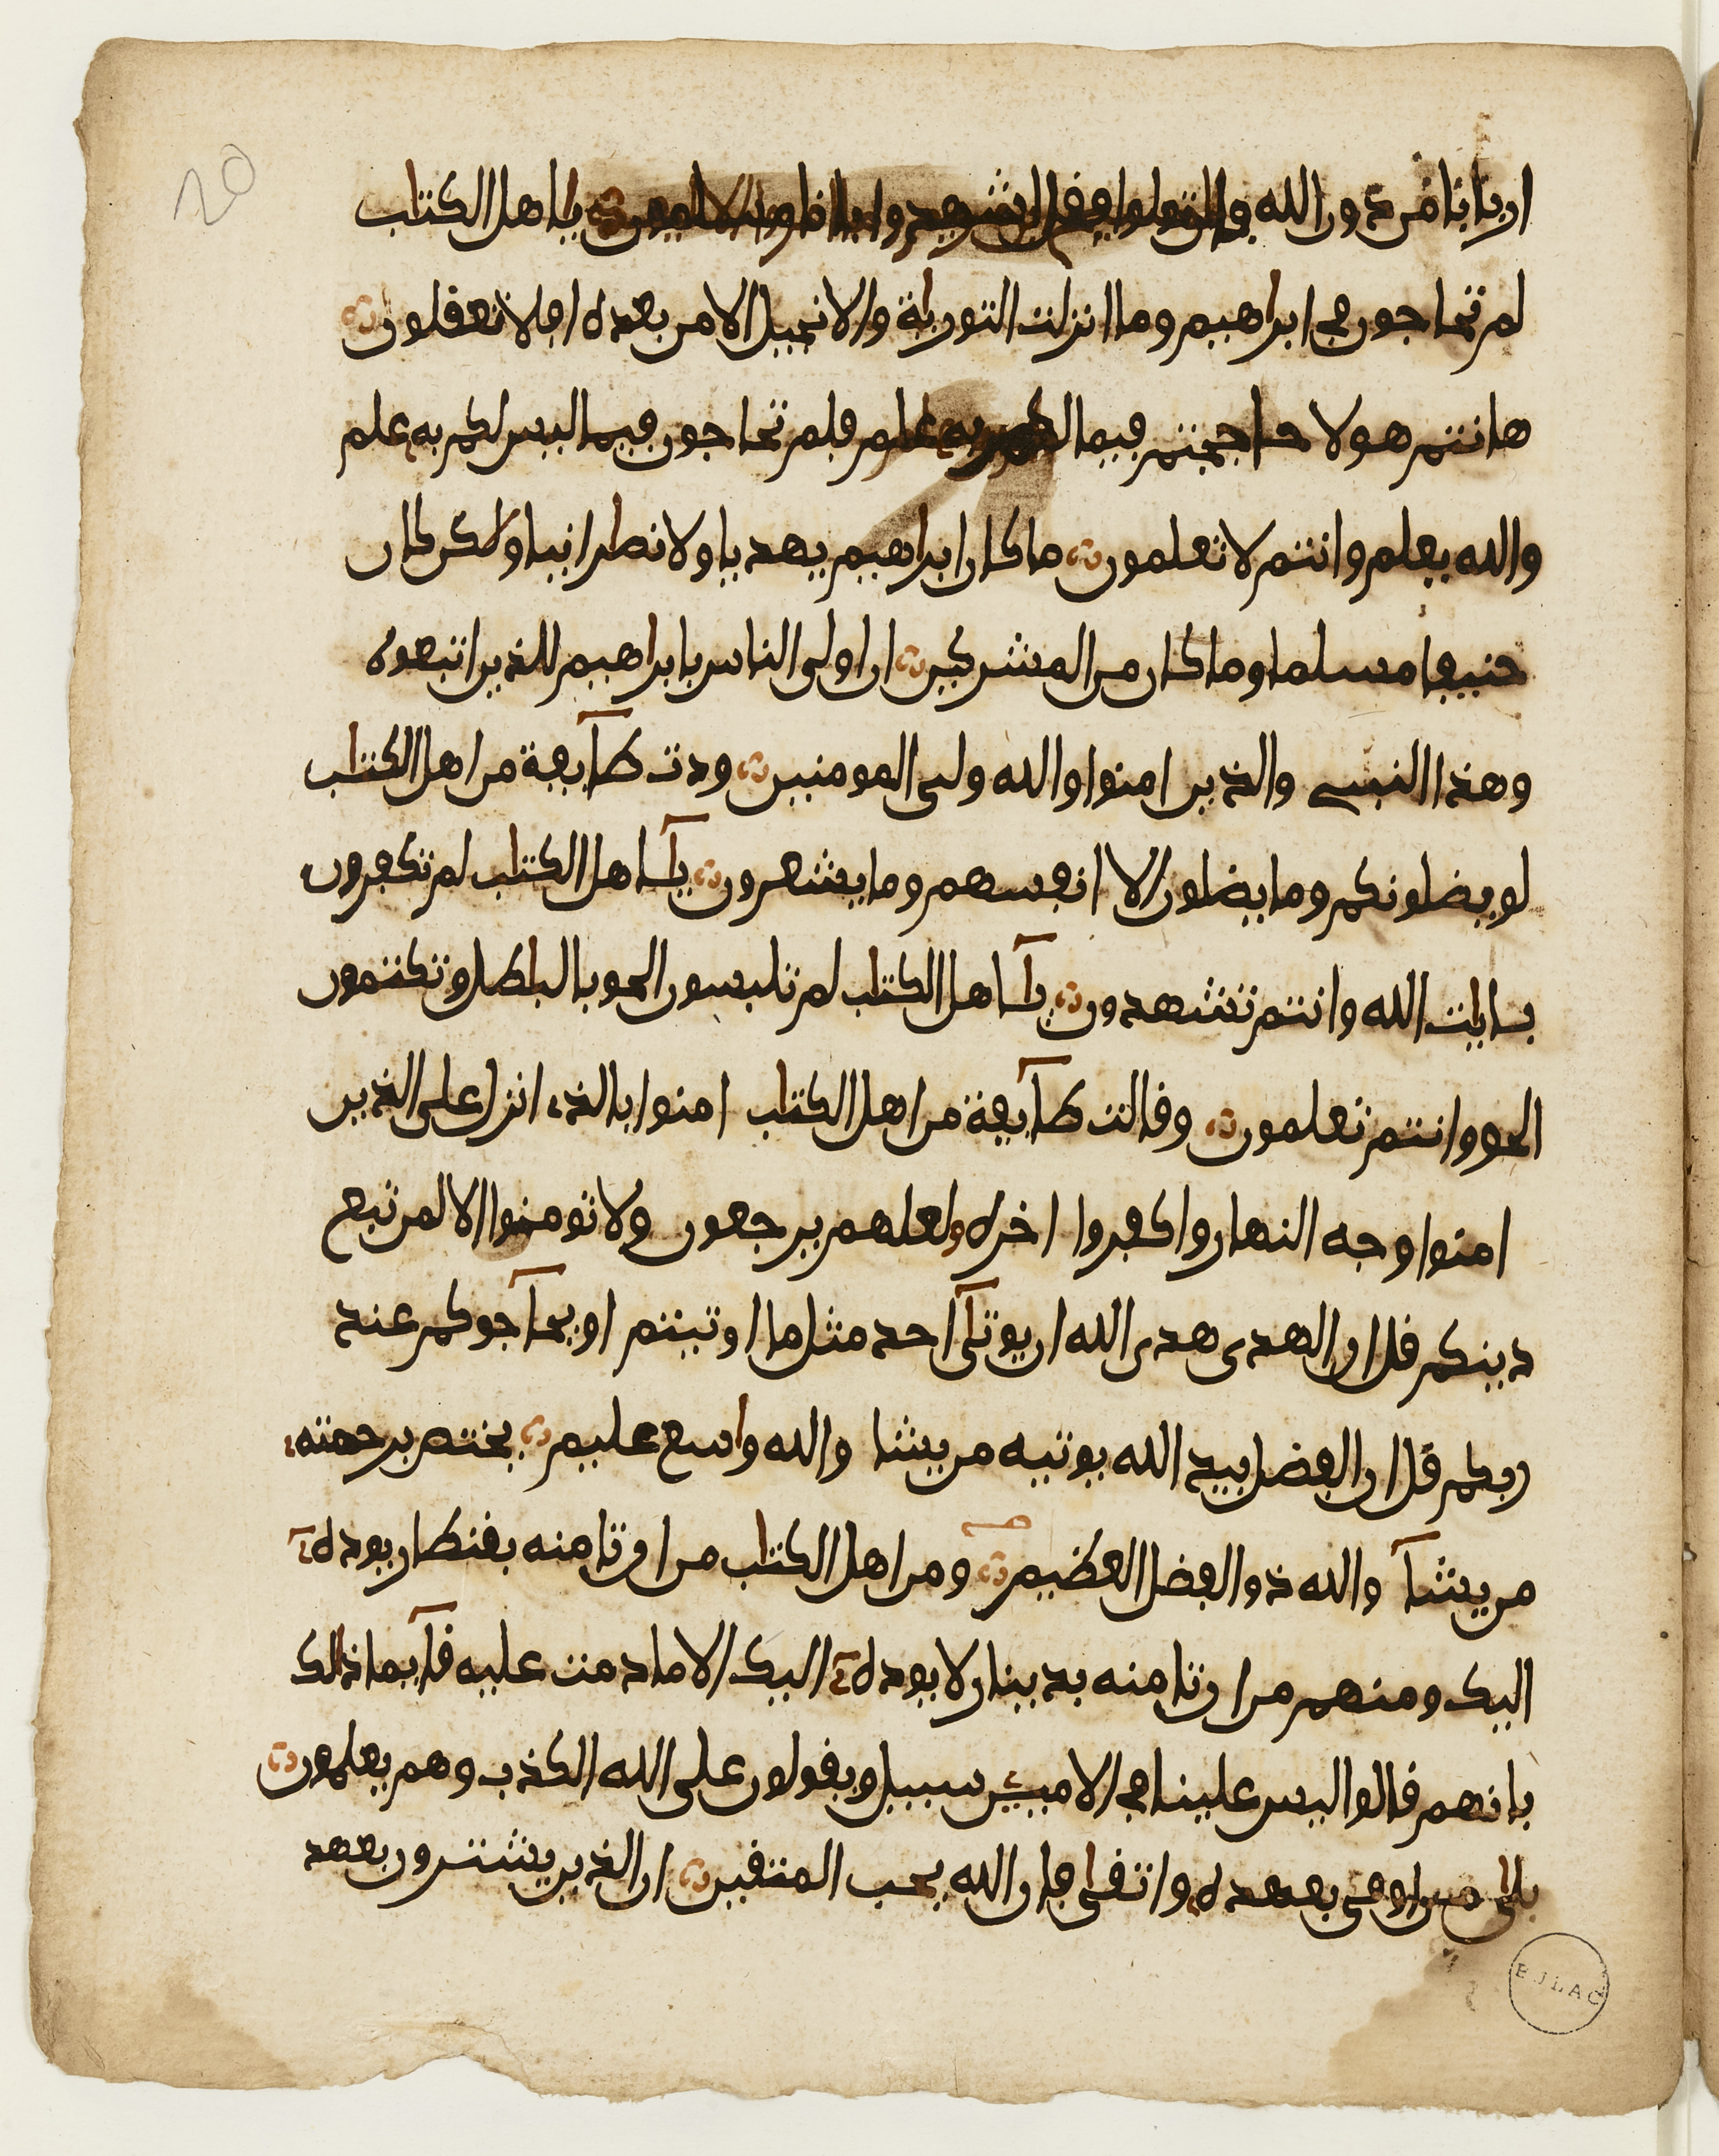 20
اربابا من دون الله فان تولوا فقولوا اشهدوا بانا مسلمون يا اهل الكتاب
لم تحاجون في ابراهيم وما انزلت التورية والانجيل الا من بعده افلا تعقلون
هانتم هولا حاججتم فيما لكم به علم فلم تحاجون فيما ليس لكم به علم
والله يعلم وانتم لا تعلمون ما كان ابراهيم يهديا ولا نصرانيا ولكن كان
حنيفا مسلما وما كان من المشركين ان اولى الناس بابراهيم للذين اتبعوه
وهذا النبي والذين امنوا والله ولي المومنين ودت طآيفة من اهل الكتاب
لو يضلونكم وما يضلون الا انفسهم وما يشعرون يآ اهل الكتاب لم تكفرون
بايات الله وانتم تشهدون يآ اهل الكتاب لم تلبسون الحق بالباطل وتكتمون
الحق وانتم تعلمون وقالت طآيفة من اهل الكتاب امنوا بالذي انزل على الذين
امنوا وجه النهار واكفروا اخره لعلهم يرجعون ولا تومنوا الا لمن تبع
دينكم قل ان الهدى هدى الله ان يوتىآ احد مثل ما اوتيتم او يحآجوكم عند
ربكم قل ان الفضل بيد الله يوتيه من يشا والله واسع عليم يختص برحمته
من يشآ والله ذو الفضل العظيم ومن اهل الكتاب من ان تامنه بقنطار يوده
اليك ومنهم من ان تامنه بدينار لا يوده اليك الا ما دمت عليه قآيما ذالك
بانهم قالوا ليس علينا في الاميين سبيل ويقولون على الله الكذب وهم يعلمون
بلى من اوفى بعهده واتقى فان الله يحب المتقين ان الذين يشترون بعهد
BULAC